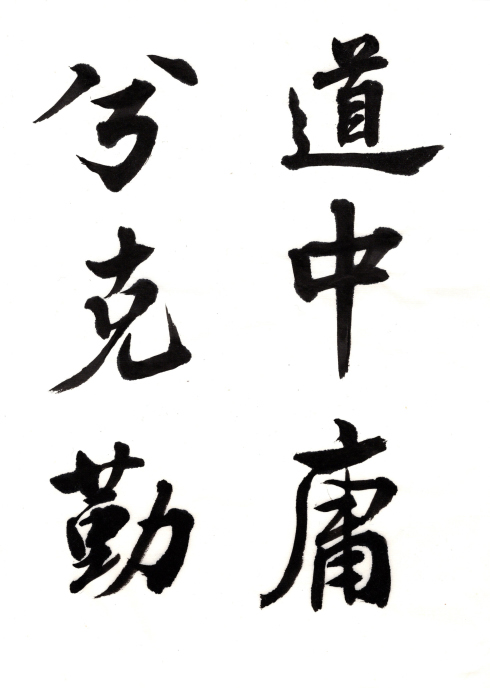 道中庸
兮克勤